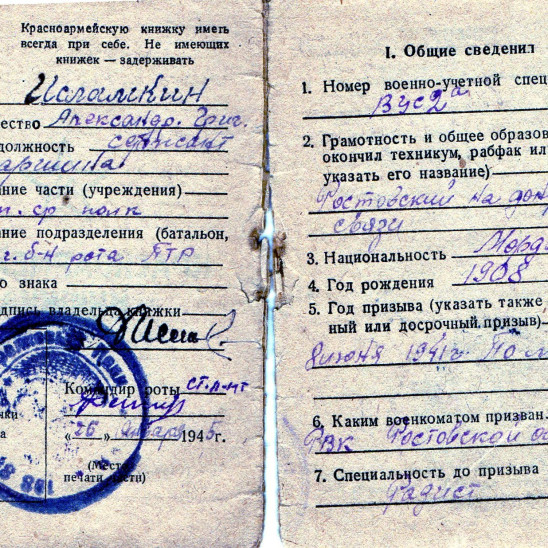 Красноармейскую книжку иметь
всегда при себе. Не имеющих
книжек — задерживать
Исламкин
ество Александр. Григ.
должность сержант
аршина
ание части (учреждения)
ср полк
ание подразделения (батальон,
б-н рота ПТР
о знака
дпись владельца книжки
Командир роты ст. л-нт
"26" января 1945г.
(Место
печати части)
I. Общие сведения
1. Номер военно-учетной спец
ВУС 2а
2. Грамотность и общее образов
окончил техникум, рабфак ил
указать его название)
Ростовский на дону
связи
3. Национальность Морд
4. Год рождения 1908
5. Год призыва (указать также
ный или досрочный призыв)
июня 1941г По м
6. Каким военкоматом призван
РВК Ростовской об
7. Специальность до призыва
Радист